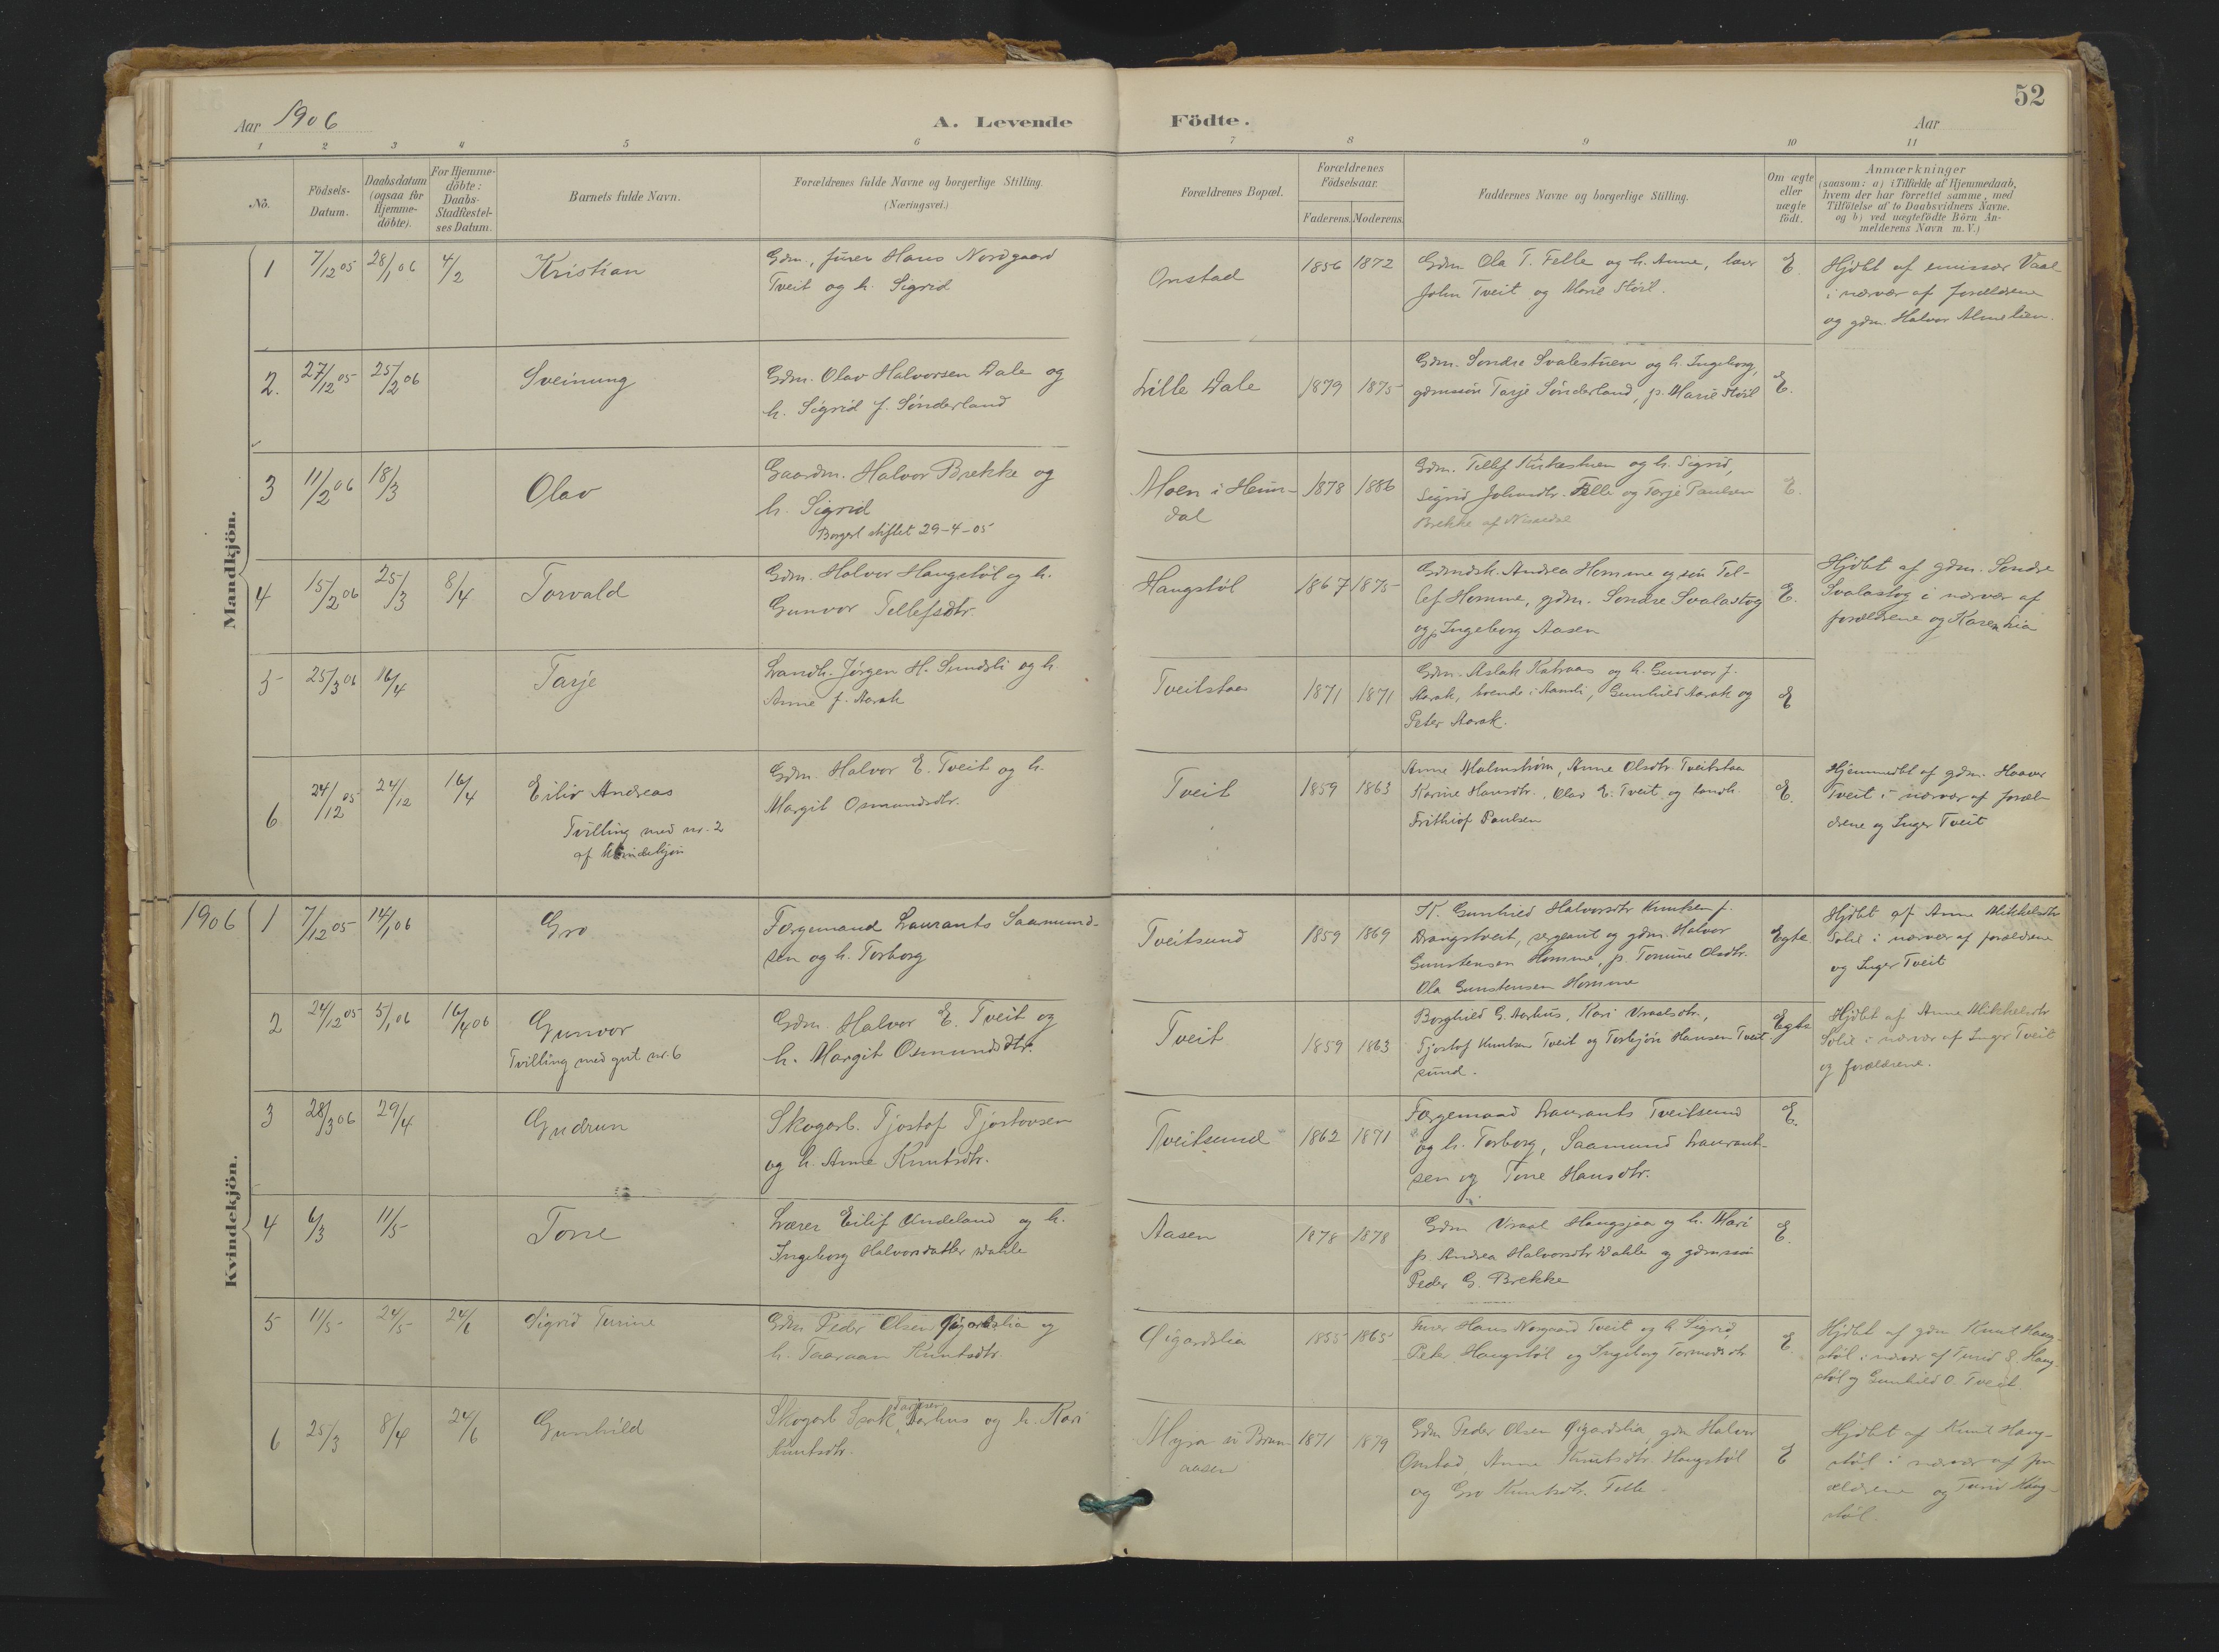 52
Aar 1906 A. Levende Födte. Aar
1 2 3 4 5 6 7 8 9 10 11
No.
Födsels-
Datum.
Daabsdatum
(ogsaa for
Hjemme-
döbte).
For Hjemme-
döbte:
Daabs-
Stadfæstel-
ses Datum.
Barnets fulde Navn.
Forældrenes fulde Navne og borgerlige Stilling.
(Næringsvei.)
Forældrenes Bopæl.
Forældrenes
Födselsaar.
Faderens. Moderens.
Faddernes Navne og borgerlige Stilling.
Om ægte
eller
uægte
födt.
Anmærkninger
(saasom: a) i Tilfælde af Hjemmedaab,
hvem der har forrettet samme, med
Tilföielse af to Daabsvidners Navne.
og b) ved uægtefödte Börn An-
melderens Navn m.V.)
Mandkjön.
1 7/12 05 28/1 06 4/2 Kristian
Gdm., furer Hans Nordgaard
Tveit og h. Sigrid
Onstad
1856 1872
Gdm Ola T. Felle og h. Anne, lærer
John Tveit og Marie Støil.
E.
Hjdbt af emissær Vaal
i nærvær af forældrene
og gdm. Halvor Almelien.
2. 27/12 05 25/2 06 Sveinung
Gdm. Olav Halvorsen Dale og
h. Sigrid f. Sønderland
Lille Dale
1879 1875
Gdm. Sondre Svalestuen og h. Ingeborg,
gdmssøn Tarje Sønderland, p. Marie Støil
E.
3 11/2 06 18/3 Olav
Gaardm. Halvor Brekke og
h. Sigrid
Borgerl stiftet 29-4-05
Moen i Heim-
dal
1878 1886
Gdm. Tellef Kirkestuen og h. Sigrid,
Sigrid Johnsdtr. Felle og Tarje Paulsen
Brekke af Nissedal
E.
4 15/2 06 25/3 8/4 Torvald
Gdm. Halvor Haugstøl og h.
Gunvor Tellefsdtr.
Haugstøl
1867 1875
Gdmdsk. Andrea Homme og søn Tel-
lef Homme, gdm. Sondre Svalastog
og p. Ingeborg Aasen
E.
Hjdbt af gdm. Sondre
Svalastog i nærvær af
forældrene og Karen Lia
5 25/3 06 16/4 Tarje
Landh. Jørgen H. Sundsli og h.
Anne f. Aarak
Tveitstaa
1871 1871
Gdm. Aslak Katraas og h. Gunvor f.
Aarak, boende i Aamli, Gunhild Aarak og
Peter Aarak.
E
6 24/12 05 24/12 16/4 Eiliv Andreas
Tvilling med nr. 2
af Kvindekjøn
Gdm. Halvor E. Tveit og h.
Margit Osmundsdtr.
Tveit
1859 1863
Anne Malmstrøm, Anne Olsdtr. Tveitstaa
Karine Hansdtr., Olav E. Tveit og landh.
Frithiof Paulsen
E.
Hjemmedbt af gdm. Haavor
Tveit i nærvær af foræl-
drene og Inger Tveit
Kvindekjön.
1906 1 7/12 05 14/1 06 Gro
Færgemand Laurants Saamund-
sen og h. Torborg
Tveitsund
1859 1869
K. Gunhild Halvorsdtr Knutsen f.
Drangstveit, sergeant og gdm. Halvor
Gunstensen Homme, p. Tomine Olsdtr.
Ola Gunstensen Homme
Egte
Hjdbt af Anne Mikkelsdtr
Solli i nærvær af forældrene
og Inger Tveit
2 24/12 05 5/1 06 16/4 06 Gunvor
Tvilling med gut nr. 6
Gdm. Halvor E. Tveit og
h. Margit Osmundsdtr.
Tveit
1859 1863
Borghild G. Aarhus, Kari Vraalsdtr.,
Tjostof Knutsen Tveit og Torbjørn Hansen Tveit-
sund.
Egte
Hjdbt af Anne Mikkelsdtr
Solli i nærvær af Inger Tveit
og forældrene.
3 28/3 06 29/4 Gudrun
Skogarb. Tjostof Tjostovsen
og h. Anne Knutsdtr.
Tveitsund
1862 1871
Færgemand Laurants Tveitsund
og h. Torborg, Saamund Laurant-
sen og Tone Hansdtr.
E.
4 6/3 11/5 Tone
Lærer Eilif Undeland og h.
Ingeborg Halvorsdatter Dahle
Aasen
1878 1878
Gdm Vraal Haugsjaa og h. Mari
p. Andrea Halvorsdtr Dahle og gdmssøn
Peder G. Brekke
E.
5 11/5 24/5 24/6 Sigrid Turine
Gdm Peder Olsen Øigardslia og
h. Taaraan Knutsdtr.
Øigardslia
1855 1865
Furer Hans Norgaard Tveit og h Sigrid,
Peter Haugstøl og Ingeborg Tormodsdtr
E.
Hjdbt af gdm Knut Haug-
støl i nærvær af Turid S. Haug-
støl og Gunhild O. Tveit.
6 25/3 8/4 24/6 Gunhild
Skogarb Isak Aarhus og h. Kari
Knutsdtr.
Myra Brun-
aasen
1871 1879
Gdm Peder Olsen Øigardslia, gdm Halvor
Onstad, Anne Knutsdtr. Haugstøl
og Gro Knutsdtr. Felle
E
Hjdbt af Knut Haug-
støl i nærvær af for
ældrene og Turid Haug-
støl.